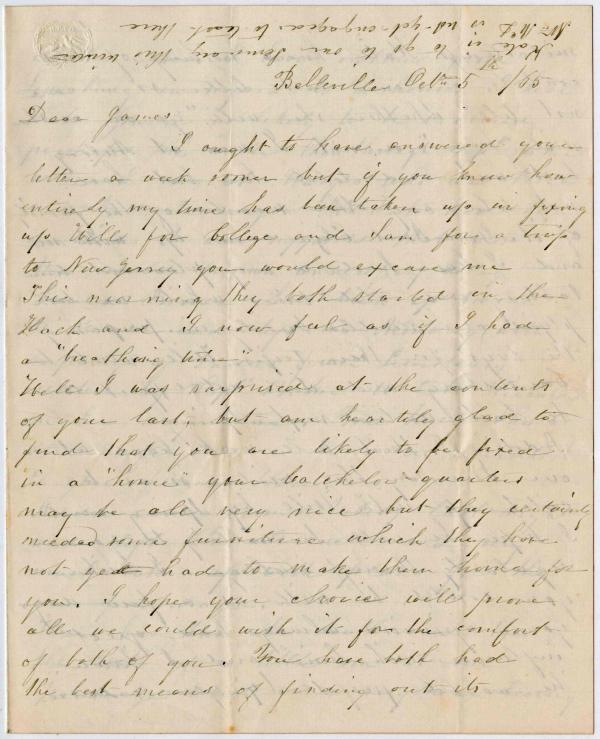 Belleville Octr 5th /65
Dear James
I ought to have answered your
letter a week sooner but if you knew how
entirely my time has been taken up in fixing
up Will for College and Sam for a trip
to New Jersey you would excuse me
This morning they both started in the
Hack and I now feel as if I had
a "breathing time"
Well I was surprised at the contents
of your last, but am heartily glad to
find that you are likely to be fixed
in a "home" your batchelor quarters
may be all very nice but they certainly
needed some furniture which they have
not yet had to make them home for
you. I hope your choice will prove
all we could wish it for the comfort
of both of you. You have both had
the best means of finding out its
Kate is to go to our Seminary this winter
Mr McD is
not yet engaged to teach there